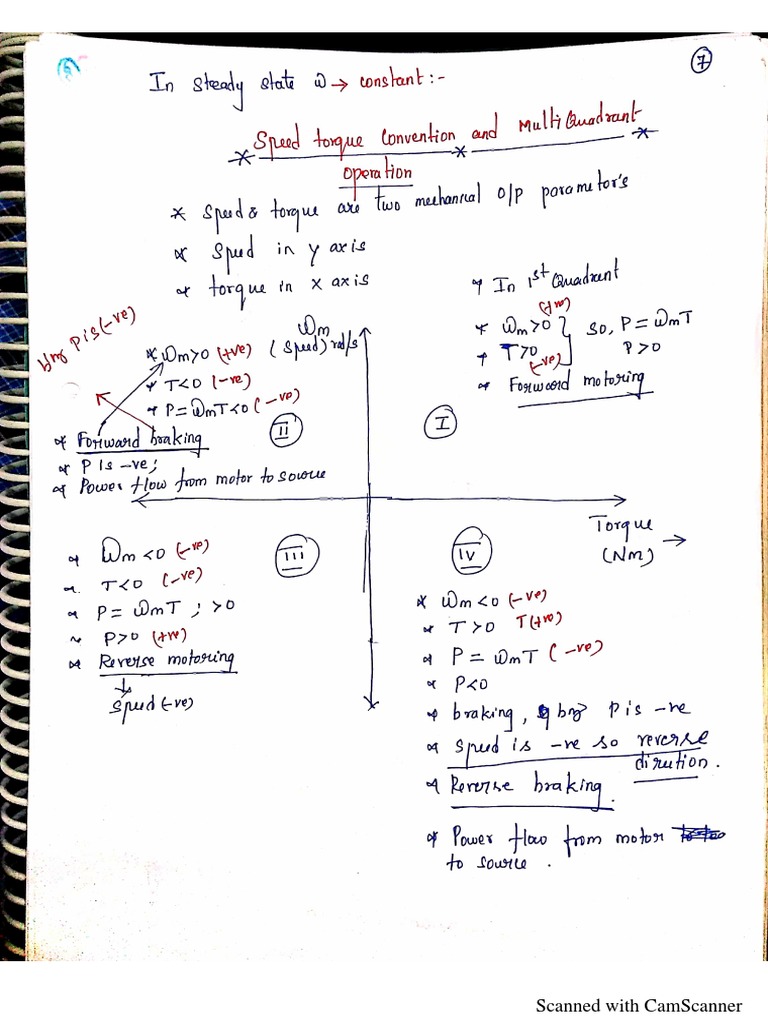 7
In steady state ω → constant:-
* Speed torque Convention and Multi Quadrant *
Operation
* Speed & torque are two mechanical O/P parametor's
* Speed in y axis
* torque in x axis
* In 1st Quadrant
* ωm>0 (+ve)
* T>0 (-ve)
so, P = ωmT
P>0
* Forward motoring
I
bnz P is (-ve)
ωm
(Speed) rad/s
* ωm>0 (+ve)
* T<0 (-ve)
* P = ωmT<0 (-ve)
II
* Forward braking
* P is -ve;
* Power flow from motor to source
Torque →
(Nm)
III
* ωm<0 (-ve)
* T<0 (-ve)
* P = ωmT ; >0
~ P>0 (+ve)
* Reverse motoring
↓
Speed (-ve)
IV
* ωm<0 (-ve)
* T>0 T(+ve)
* P = ωmT (-ve)
* P<0
* braking, bnz P is -ve
* Speed is -ve so reverse
dirution.
* Reverse braking.
* Power flow from motor
to source.
Scanned with CamScanner